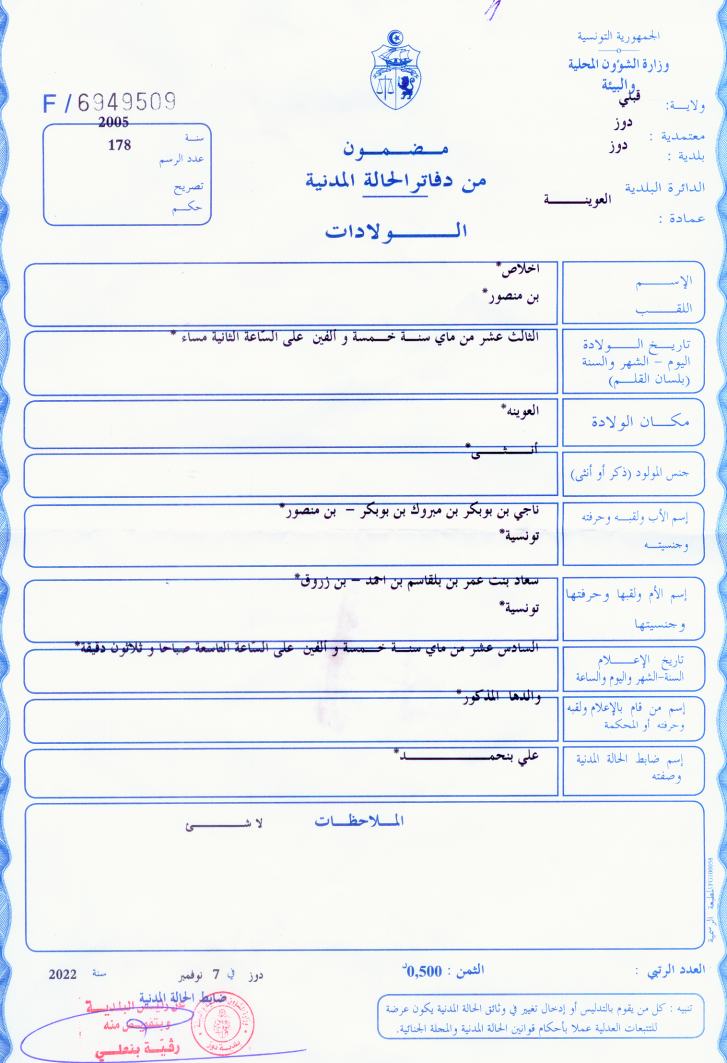 الجمهورية التونسية
وزارة الشؤون المحلية
والبيئة
ولاية: قبلي
معتمدية : دوز
بلدية : دوز
الدائرة البلدية
عمادة : العوينـــــة
F / 6949509
سنة 2005
عدد الرسم 178
تصريح
حكم
مضمون
من دفاتر الحالة المدنية
الولادات
الإسم
اخلاص*
اللقب
بن منصور*
تاريخ الولادة
اليوم – الشهر والسنة
(بلسان القلم)
الثالث عشر من ماي سنة خمسة و ألفين على السّاعة الثانية مساء *
مكان الولادة
العوينه*
جنس المولود (ذكر أو أنثى)
أنثى*
إسم الأب ولقبه وحرفته
وجنسيته
ناجي بن بوبكر بن مبروك بن بوبكر – بن منصور*
تونسية*
إسم الأم ولقبها وحرفتها
وجنسيتها
سعاد بنت عمر بن بلقاسم بن احمد – بن زروق*
تونسية*
تاريخ الإعلام
السنة-الشهر واليوم والساعة
السادس عشر من ماي سنة خمسة و ألفين على السّاعة التاسعة صباحا و ثلاثون دقيقة*
إسم من قام بالإعلام ولقبه
وحرفته أو المحكمة
والدها المذكور*
إسم ضابط الحالة المدنية
وصفته
علي بنحمـــد*
الملاحظات
لا شئ
العدد الرتبي :
الثمن : 0,500د
دوز في 7 نوفمبر سنة 2022
ضابط الحالة المدنية
عن رئيس البلدية
وبتفويض منه
رقيّة بنعلي
تنبيه : كل من يقوم بالتدليس أو إدخال تغيير في وثائق الحالة المدنية يكون عرضة
للتتبعات العدلية عملا بأحكام قوانين الحالة المدنية والمجلة الجنائية.